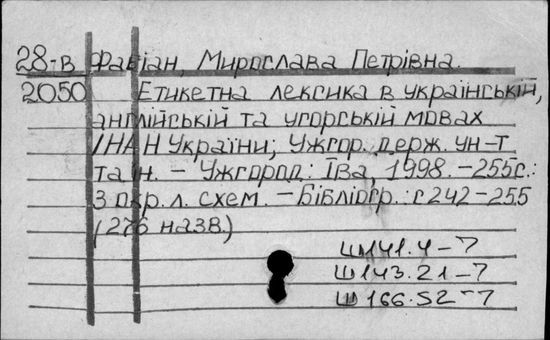 28-в Фабіан, Мирослава Петрівна.
2050 Етикетна лексика в українській,
англійській та угорській мовах
/НАН України; Ужгор. держ. ун-т
та ін. – Ужгород: Іва, 1998. – 255с.:
3 окр. л. схем. – Бібліогр.: с242-255
(276 назв.)
Ш141.4-7
Ш143.21-7
Ш166.52-7